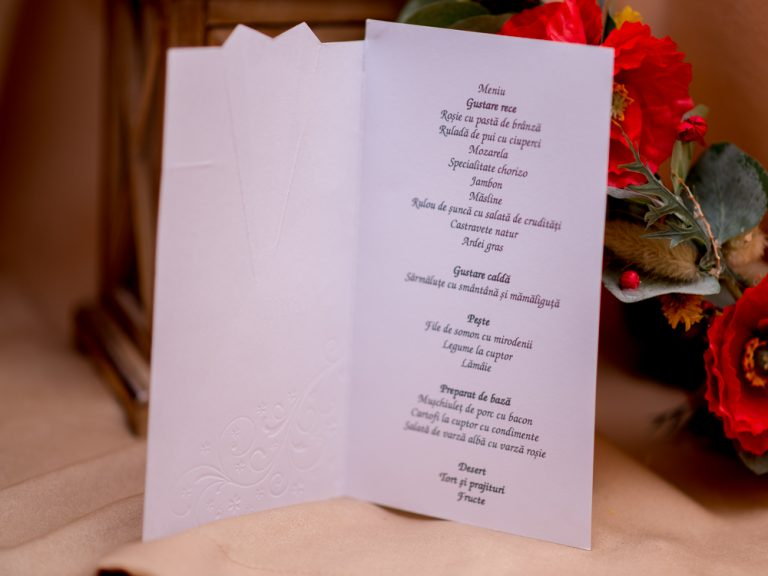 Meniu
Gustare rece
Roșie cu pastă de brânză
Ruladă de pui cu ciuperci
Mozarela
Specialitate chorizo
Jambon
Măsline
Rulou de șuncă cu salată de crudități
Castravete natur
Ardei gras
Gustare caldă
Sărmăluțe cu smântână și mămăliguță
Pește
File de somon cu mirodenii
Legume la cuptor
Lămâie
Preparat de bază
Mușchiuleț de porc cu bacon
Cartofi la cuptor cu condimente
Salată de varză albă cu varză roșie
Desert
Tort și prajituri
Fructe